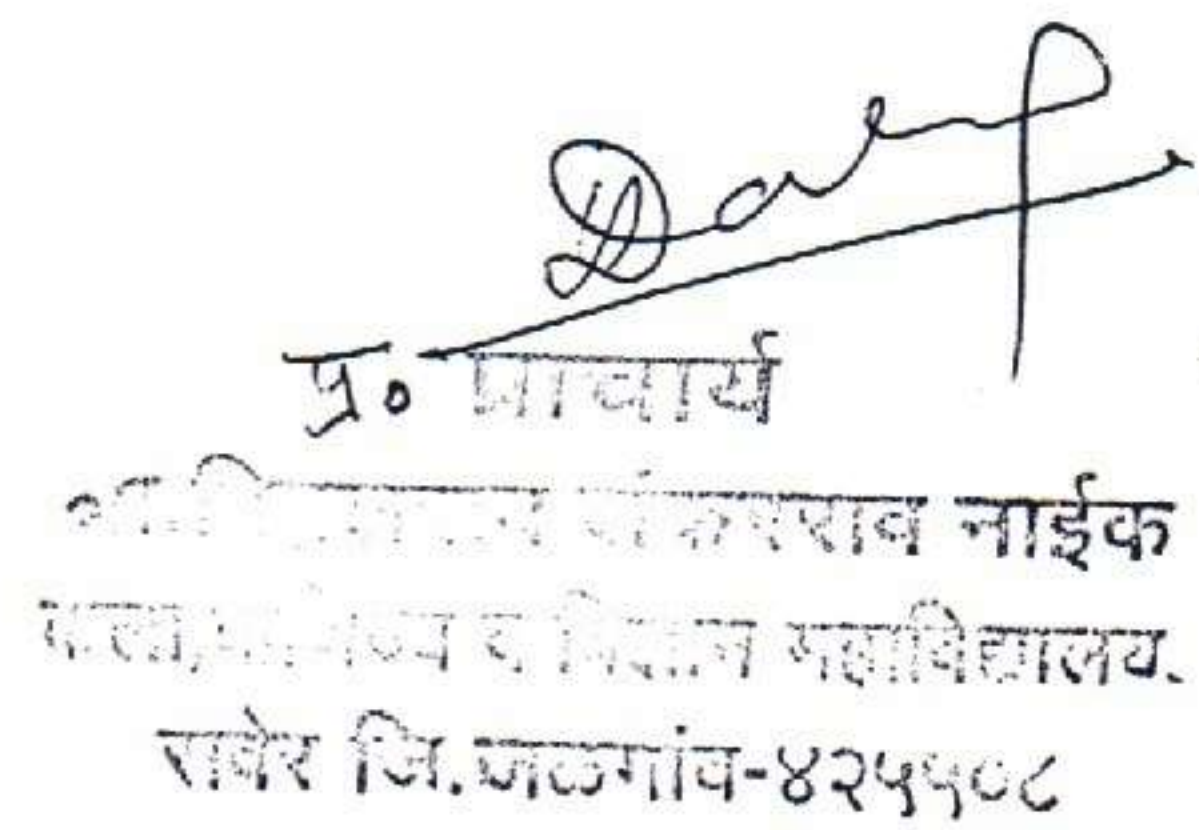 प्र. प्राचार्य
शंकरराव नाईक
कला, वाणिज्य व विज्ञान महाविद्यालय.
रावेर जि.जळगांव-४२५५०८